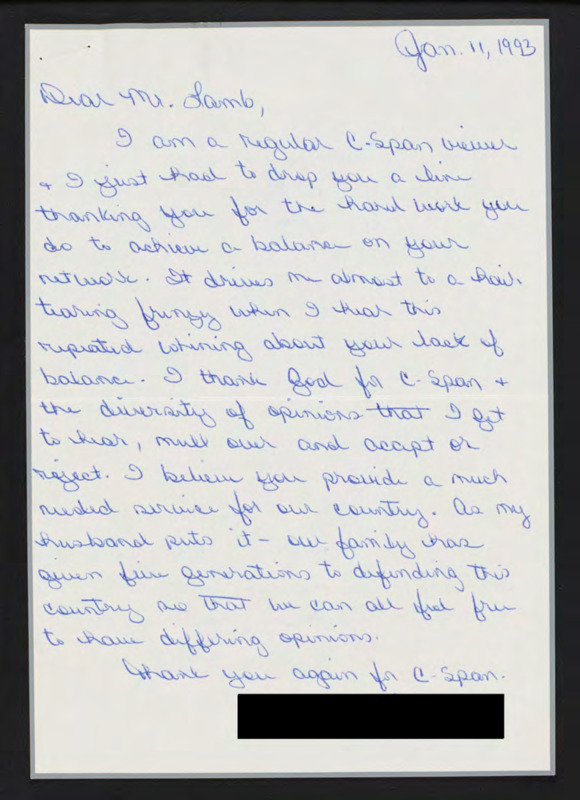 Jan. 11, 1993
Dear Mr. Lamb,
I am a regular C-Span viewer
& I just had to drop you a line
thanking you for the hard work you
do to achieve a balance on your
network. It drives me almost to a hair
tearing frenzy when I hear this
repeated whining about your lack of
balance. I thank God for C-Span &
the diversity of opinions that I get
to hear, mull over and accept or
reject. I believe you provide a much
needed service for our country. As my
husband puts it - our family has
given five generations to defending this
country so that we can all feel free
to have differing opinions.
Thank you again for C-Span.